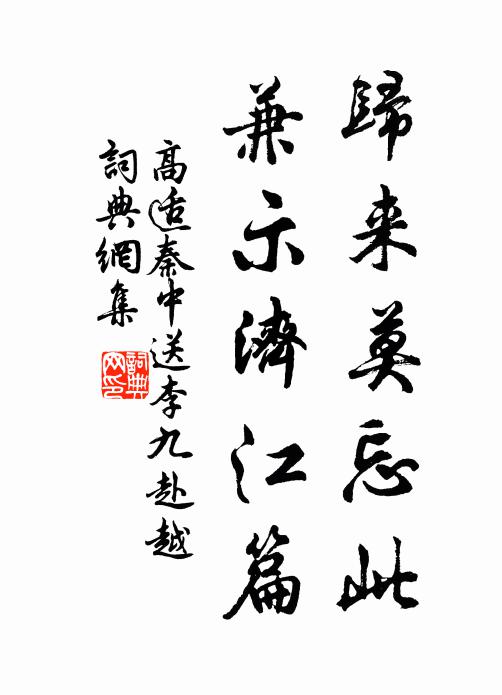 歸来莫忘此
兼示濟江篇
高适秦中送李九赴越
詞典網集
詞典網印